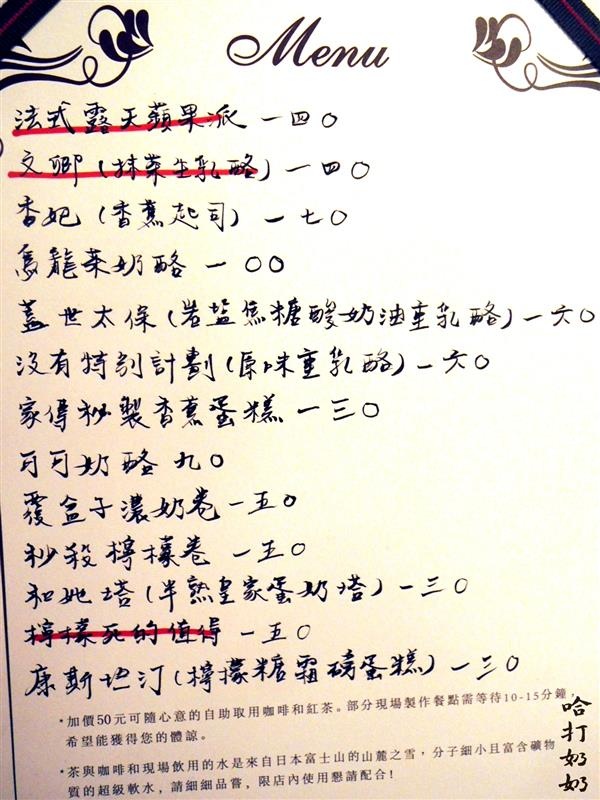 Menu
法式露天蘋果派 一四〇
文卿(抹茶生乳酪) 一四〇
香妃(香蕉起司) 一七〇
烏龍茶奶酪 一〇〇
蓋世太保(岩盐焦糖酸奶油重乳酪) 一六〇
沒有特別計劃(原味重乳酪) 一六〇
家傳秘製香蕉蛋糕 一三〇
可可奶酪 九〇
覆盆子濃奶卷 一五〇
秒殺檸檬卷 一五〇
和她塔(半熟皇家蛋奶塔) 一三〇
檸檬死的值得 一五〇
康斯坦汀(檸檬糖霜磅蛋糕) 一三〇
*加價50元可隨心意的自助取用咖啡和紅茶。部分現場製作餐點需等待10-15分鐘,
希望能獲得您的體諒。
*茶與咖啡和現場飲用的水是來自日本富士山的山麓之雪,分子細小且富含礦物
質的超級軟水,請細細品嘗,限店內使用懇請配合!
哈打奶奶